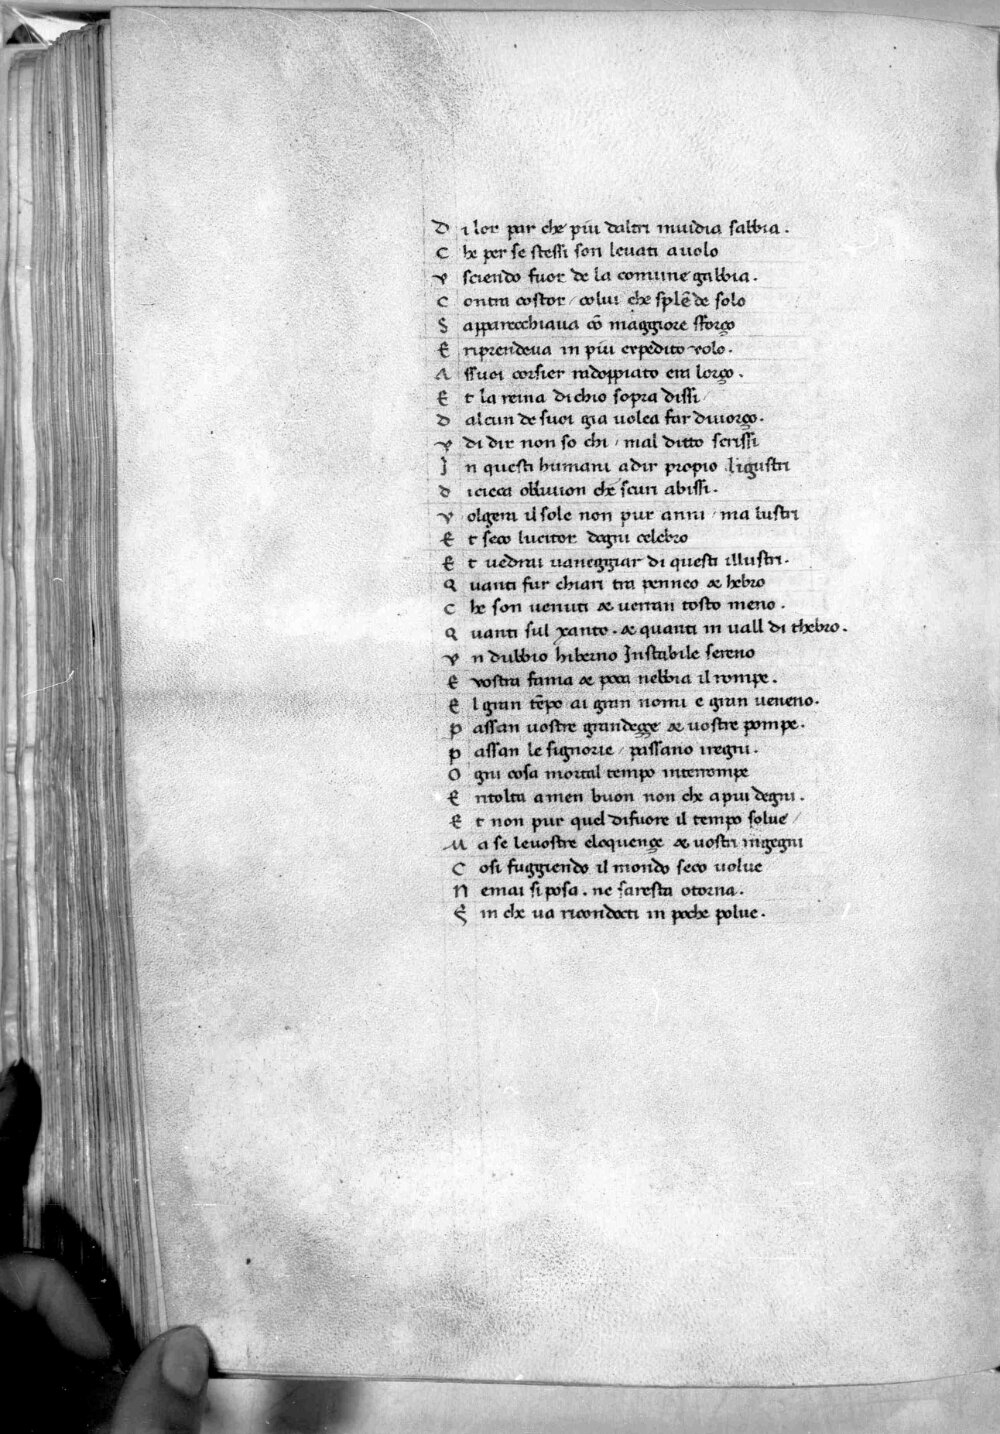 D i lor par che piu daltri inuidia sabbia.
C he per se stessi son leuati auolo
V sciendo fuor de la comune gabbia.
C ontra costor / colui che splẽde solo
S apparecchiaua cõ maggiore sforço
E riprendeua in piu expedito volo.
A ssuoi corsier radoppiato era lorço.
E t la reina dichio sopra dissi /
D alcun de suoi gia uolea far diuorço.
V di dir non so chi / mal ditto scrissi
I n questi humani adir propio ligustri
D icieca obliuion che scuri abissi.
V olgera il sole non pur anni / ma lustri
E t seco lucitor dagni celebro
E t uedrai uaneggiar di questi illustri.
Q uanti fur chiari tra penneo & hebro
C he son uenuti & uerran tosto meno.
Q uanti sul xanto. & quanti in uall di thebro.
V n dubbio hiberno Instabile sereno
E vostra fama & poca nebbia il rompe.
E l gran tẽpo ai gran nomi e gran ueneno.
P assan uostre grandeççe & uostre pompe.
P assan le signorie / passano iregni.
O gni cosa mortal tempo interrompe
E ritolta amen buon non che apiu degni.
E t non pur quel difuore il tempo solue /
M a se leuostre eloquençe & uostri ingegni
C osi fuggiendo il mondo seco uolue
N emai si posa. ne saresta otorna.
S in che ua ricondocti in poche polue.